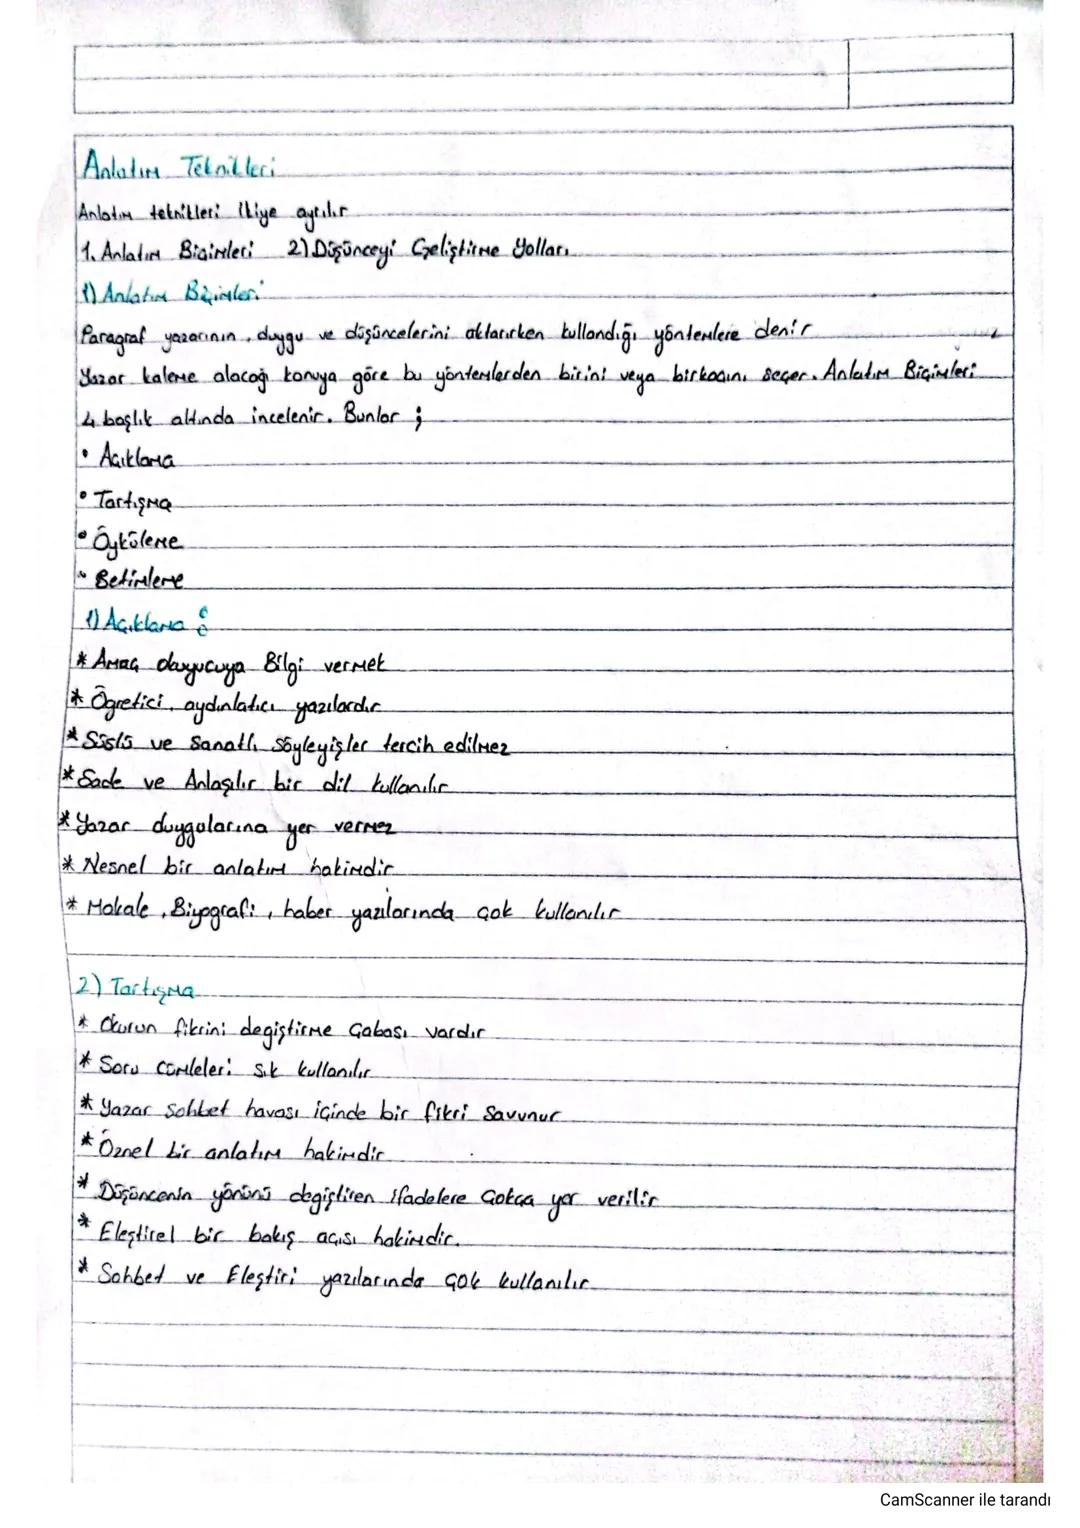 Anlatım Teknikleri
Anlatım teknikleri ikiye ayrılır
1. Anlatım Biçimleri 2) Düşünceyi Geliştirme Yolları
1) Anlatım Biçimleri
Paragraf yazarının, duygu ve düşüncelerini aktarırken kullandığı yöntemlere denir
Yazar kaleme alacağı konuya göre bu yöntemlerden birini veya birkaçını seçer. Anlatım Biçimleri
4 başlık altında incelenir. Bunlar ;
• Açıklama
• Tartışma
• Öyküleme
• Betimleme
1) Açıklama :
* Amaç okuyucuya Bilgi vermek
* Ögretici, aydınlatıcı yazılardır
* Süslü ve Sanatlı söyleyişler tercih edilmez
* Sade ve Anlaşılır bir dil kullanılır
* Yazar duygularına yer vermez
* Nesnel bir anlatım hakimdir
* Makale, Biyografi, haber yazılarında çok kullanılır
2) Tartışma
* Okurun fikrini degiştirme Çabası vardır
* Soru cümleleri sık kullanılır
* Yazar Sohbet havası içinde bir fikri Savunur
* Öznel bir anlatım hakimdir
* Düşüncenin yönünü degiştiren ifadelere Çokça yer verilir
* Eleştirel bir bakış açısı hakimdir.
* Sohbet ve Eleştiri yazılarında çok kullanılır
CamScanner ile tarandı